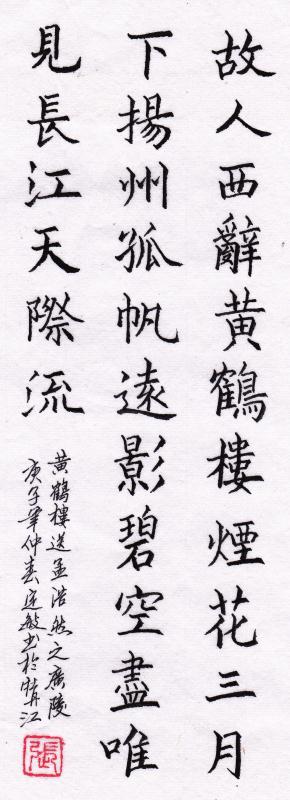 故人西辭黄鶴樓煙花三月
下揚州孤帆遠影碧空盡唯
見長江天際流
黄鶴樓送孟浩然之廣陵
庚子年仲春延敏书於牡丹江
張